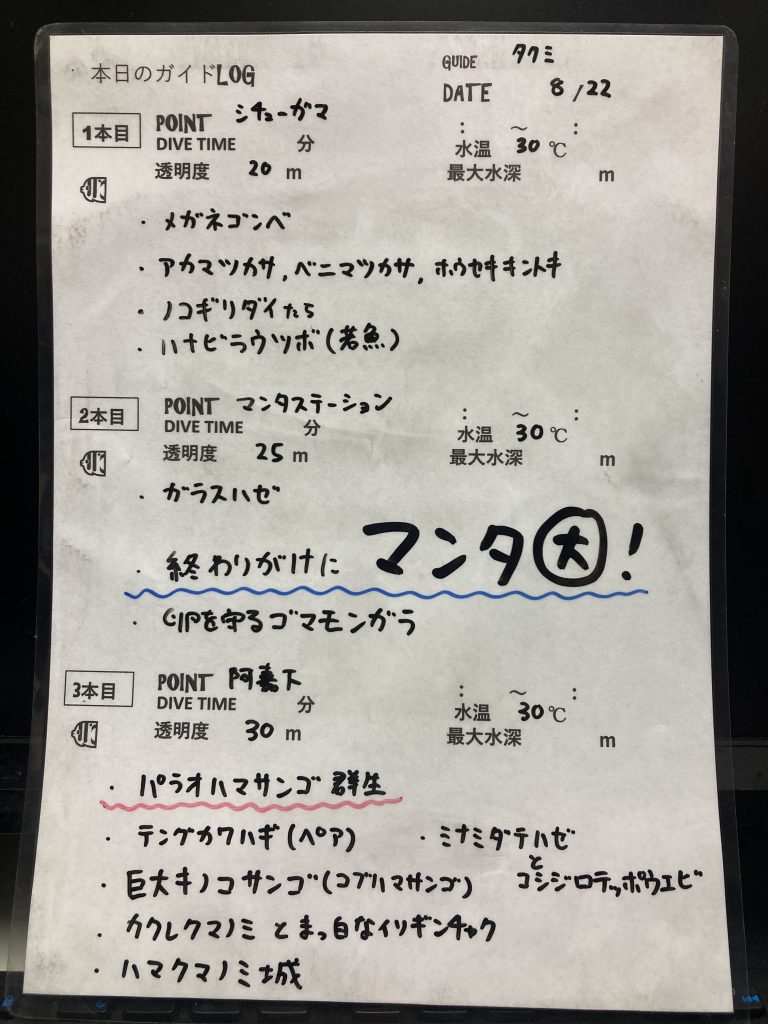 本日のガイドLOG
GUIDE タクミ
DATE 8/22
1本目 POINT シチューガマ
: ～ :
DIVE TIME 分 水温 30℃
透明度 20 m 最大水深 m
・メガネゴンベ
・アカマツカサ, ベニマツカサ, ホウセキキントキ
・ノコギリダイたち
・ハナビラウツボ(若魚)
2本目 POINT マンタステーション
: ～ :
DIVE TIME 分 水温 30℃
透明度 25 m 最大水深 m
・ガラスハゼ
・終わりがけに マンタ大!
・を守るゴマモンガラ
3本目 POINT 阿嘉下
: ～ :
DIVE TIME 分 水温 30℃
透明度 30 m 最大水深 m
・パラオハマサンゴ 群生
・テングカワハギ(ペア) ・ミナミダテハゼ
と
・巨大キノコサンゴ(コブハマサンゴ) コシジロテッポウエビ
・カクレクマノミ とまっ白なイソギンチャク
・ハマクマノミ城